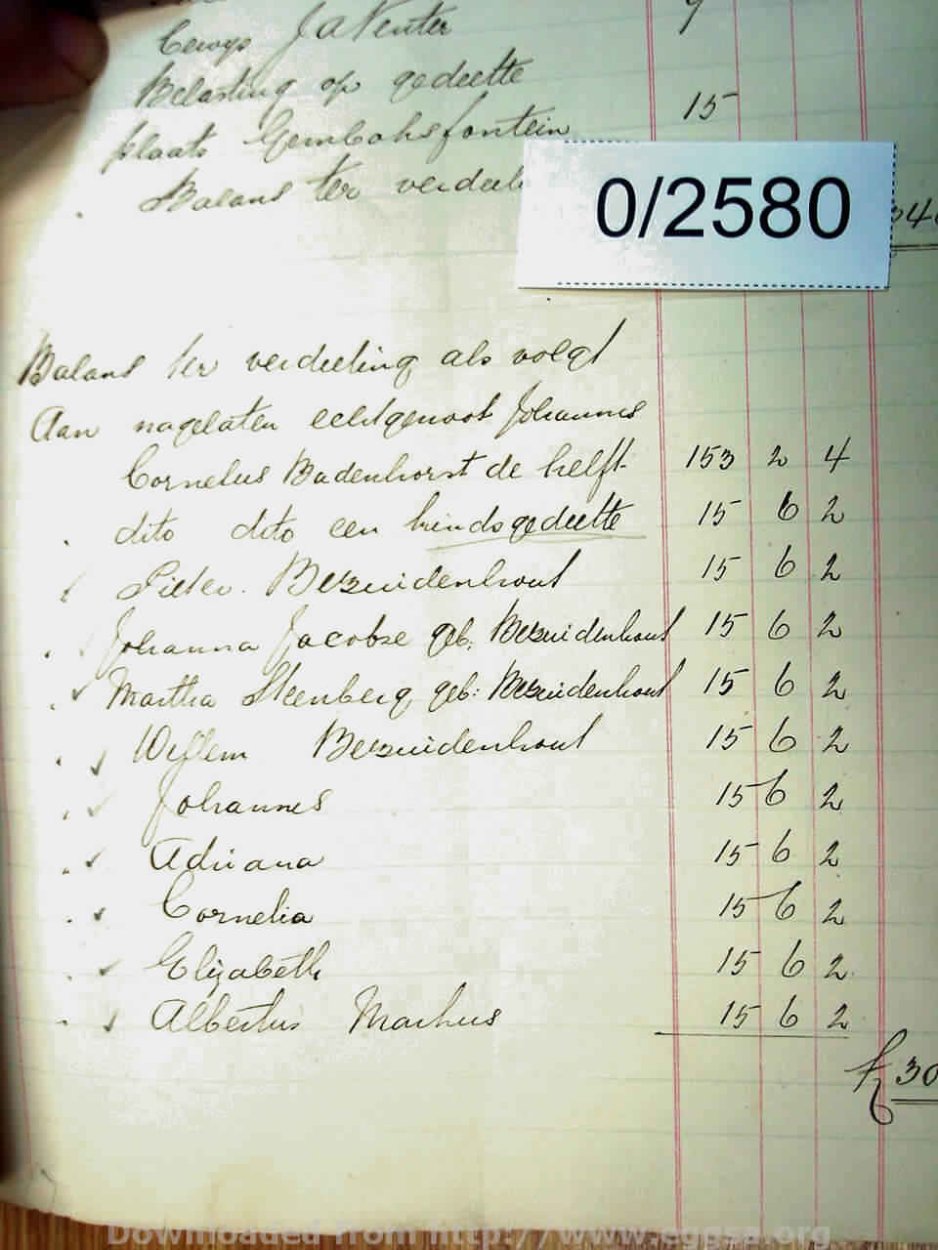 Bewys J A Venter 9
Belasting op gedeelte
plaats Gemboksfontein 15
Balans ter verdeel
0/2580
Balans ter verdeeling als volgt
Aan nagelaten echtgenoot Johannes
Cornelus Badenhorst de helft 153 2 4
" dito dito een kindsgedeelte 15 6 2
" Pieter Bezuidenhout 15 6 2
" Johanna Jacobse geb: Bezuidenhout 15 6 2
" Martha Steenberg geb: Bezuidenhout 15 6 2
" Willem Bezuidenhout 15 6 2
" Johannes 15 6 2
" Adriana 15 6 2
" Cornelia 15 6 2
" Elizabeth 15 6 2
" Albertus Markus 15 6 2
£ 30
Downloaded from http://www.eggsa.org